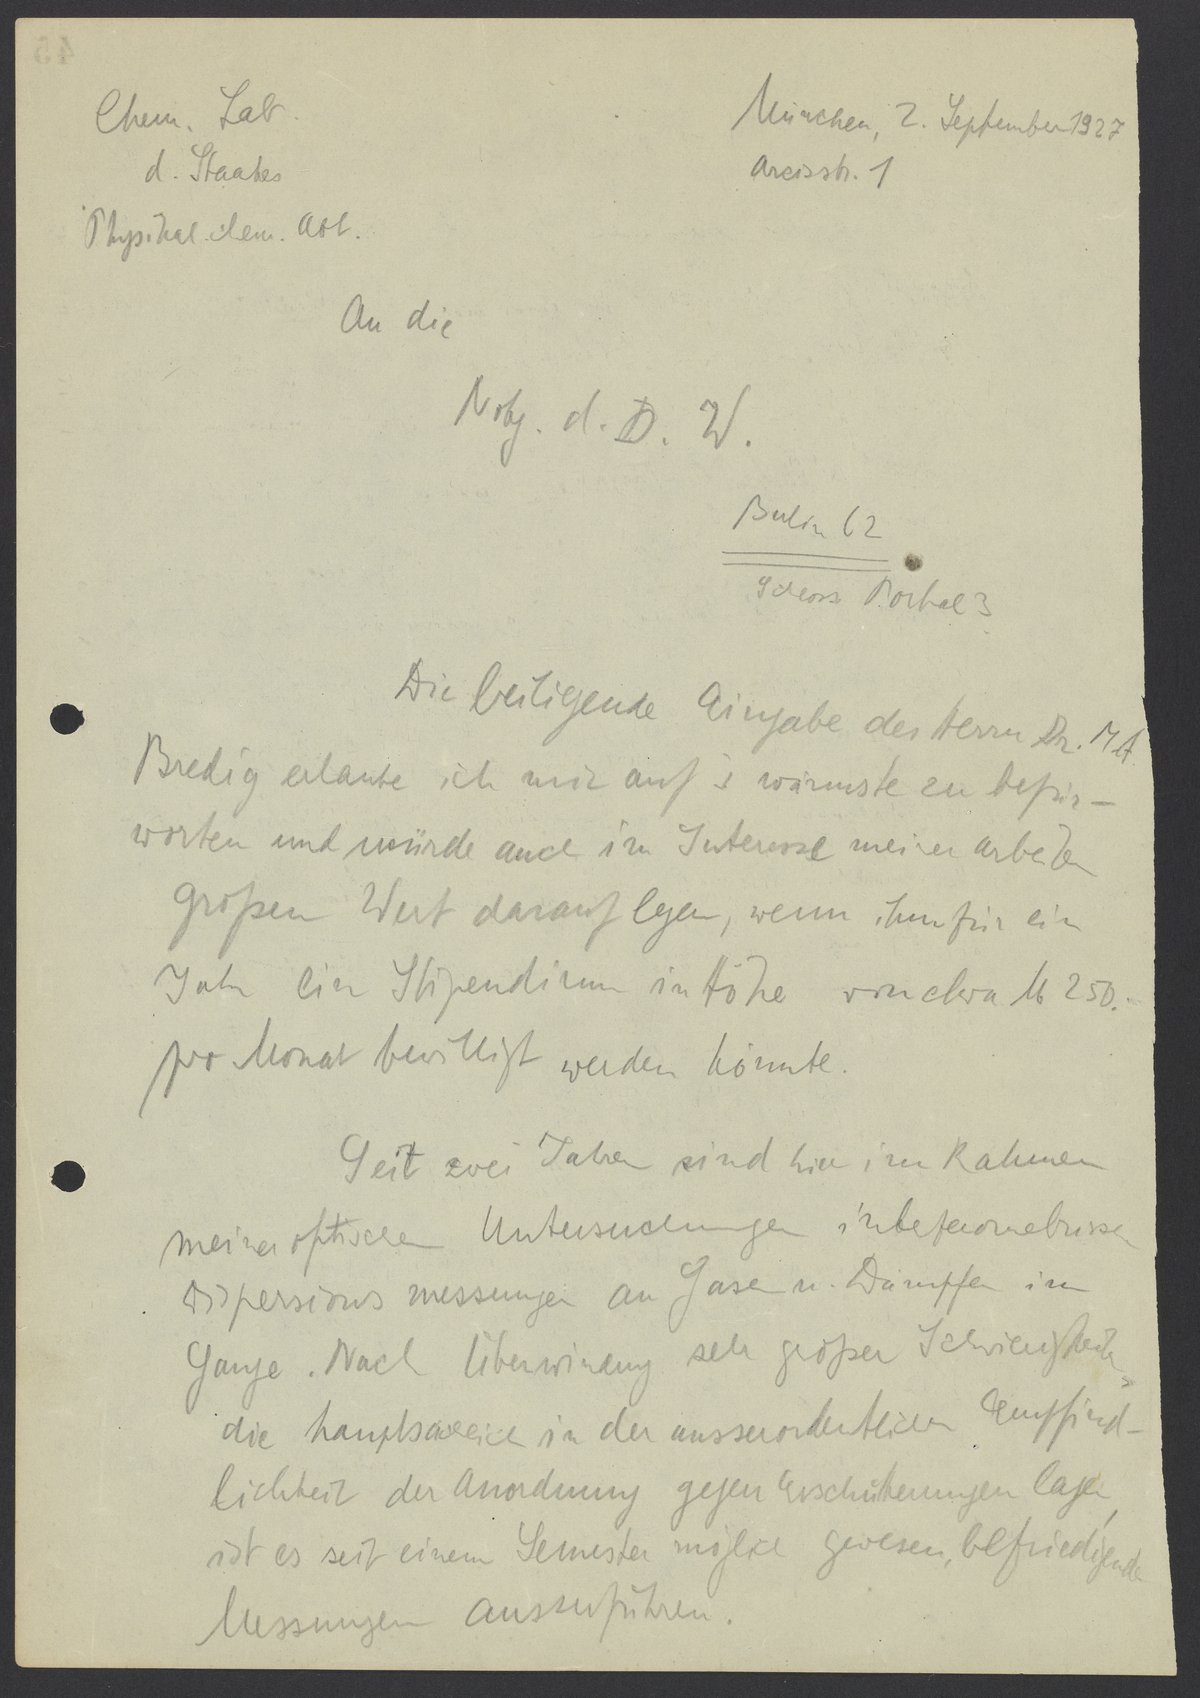 45
Chem. Lab.
d. Staates
Physikal. chem. Abt.
München, 2. September 1927
Arcisstr. 1
An die
Notg. d. D. W.
Berlin C 2
Schloss Portal 3
Die beiligende Eingabe des Herrn Dr. M A
Bredig erlaube ich mir auf's wärmste zu befür-
worten und würde auch im Interesse meiner Arbeiten
großen Wert darauf legen, wenn ihm für ein
Jahr ein Stipendium in Höhe von etwa M 250.-
pro Monat bewilligt werden könnte.
Seit zwei Jahren sind hier im Rahmen
meiner optischen Untersuchungen interferometrische
Dispersionsmessungen an Gasen u. Dämpfen im
Gange. Nach Überwindung sehr großer Schwierigkeiten,
die hauptsächlich in der ausserordentlichen Empfind-
lichkeit der Anordnung gegen Erschütterungen lagen,
ist es seit einem Semester möglich gewesen, befriedigende
Messungen auszuführen.